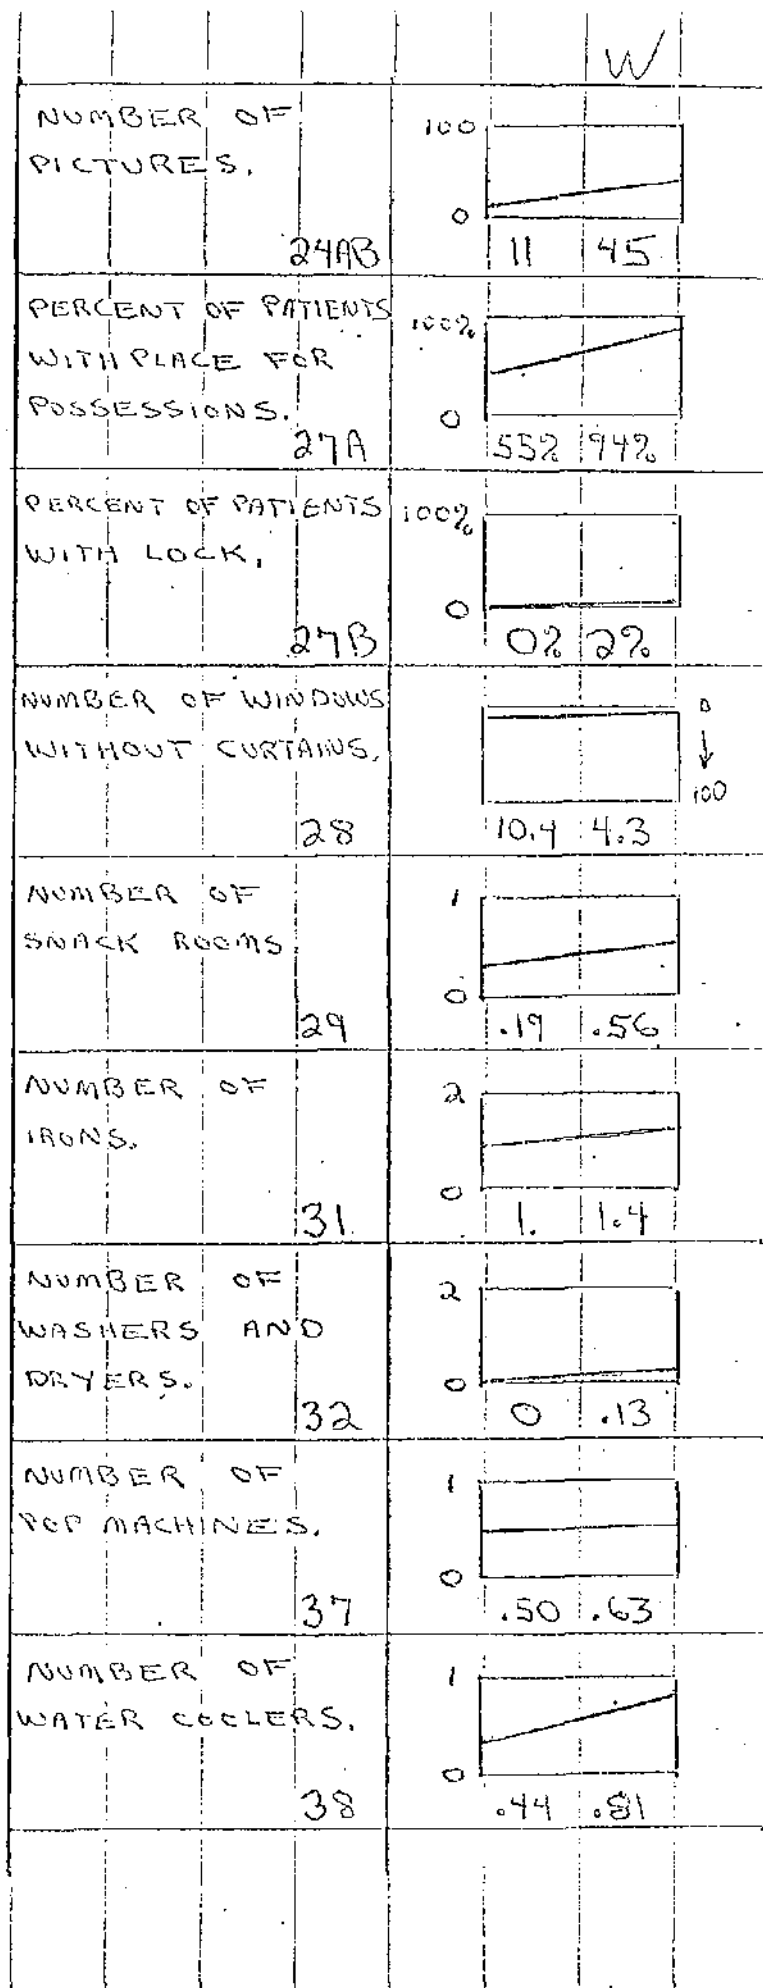 W
NUMBER OF
PICTURES.
24AB
100
0
11 45
PERCENT OF PATIENTS
WITH PLACE FOR
POSSESSIONS.
27A
100%
0
55% 94%
PERCENT OF PATIENTS
WITH LOCK.
27B
100%
0
0% 2%
NUMBER OF WINDOWS
WITHOUT CURTAINS.
28
0
↓
100
10.4 4.3
NUMBER OF
SNACK ROOMS
29
1
0
.19 .56
NUMBER OF
IRONS.
31
2
0
1. 1.4
NUMBER OF
WASHERS AND
DRYERS.
32
2
0
0 .13
NUMBER OF
POP MACHINES.
37
1
0
.50 .63
NUMBER OF
WATER COOLERS.
38
1
0
.44 .81